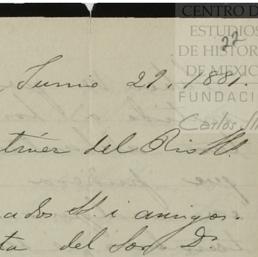 CENTRO D
ESTUDIOS
DE HISTOR
DE MÉXIC
FUNDACI
Carlos Sl
22
Junio 21. 1881.
del Rio
ados i amigos.
ta del Sor. D